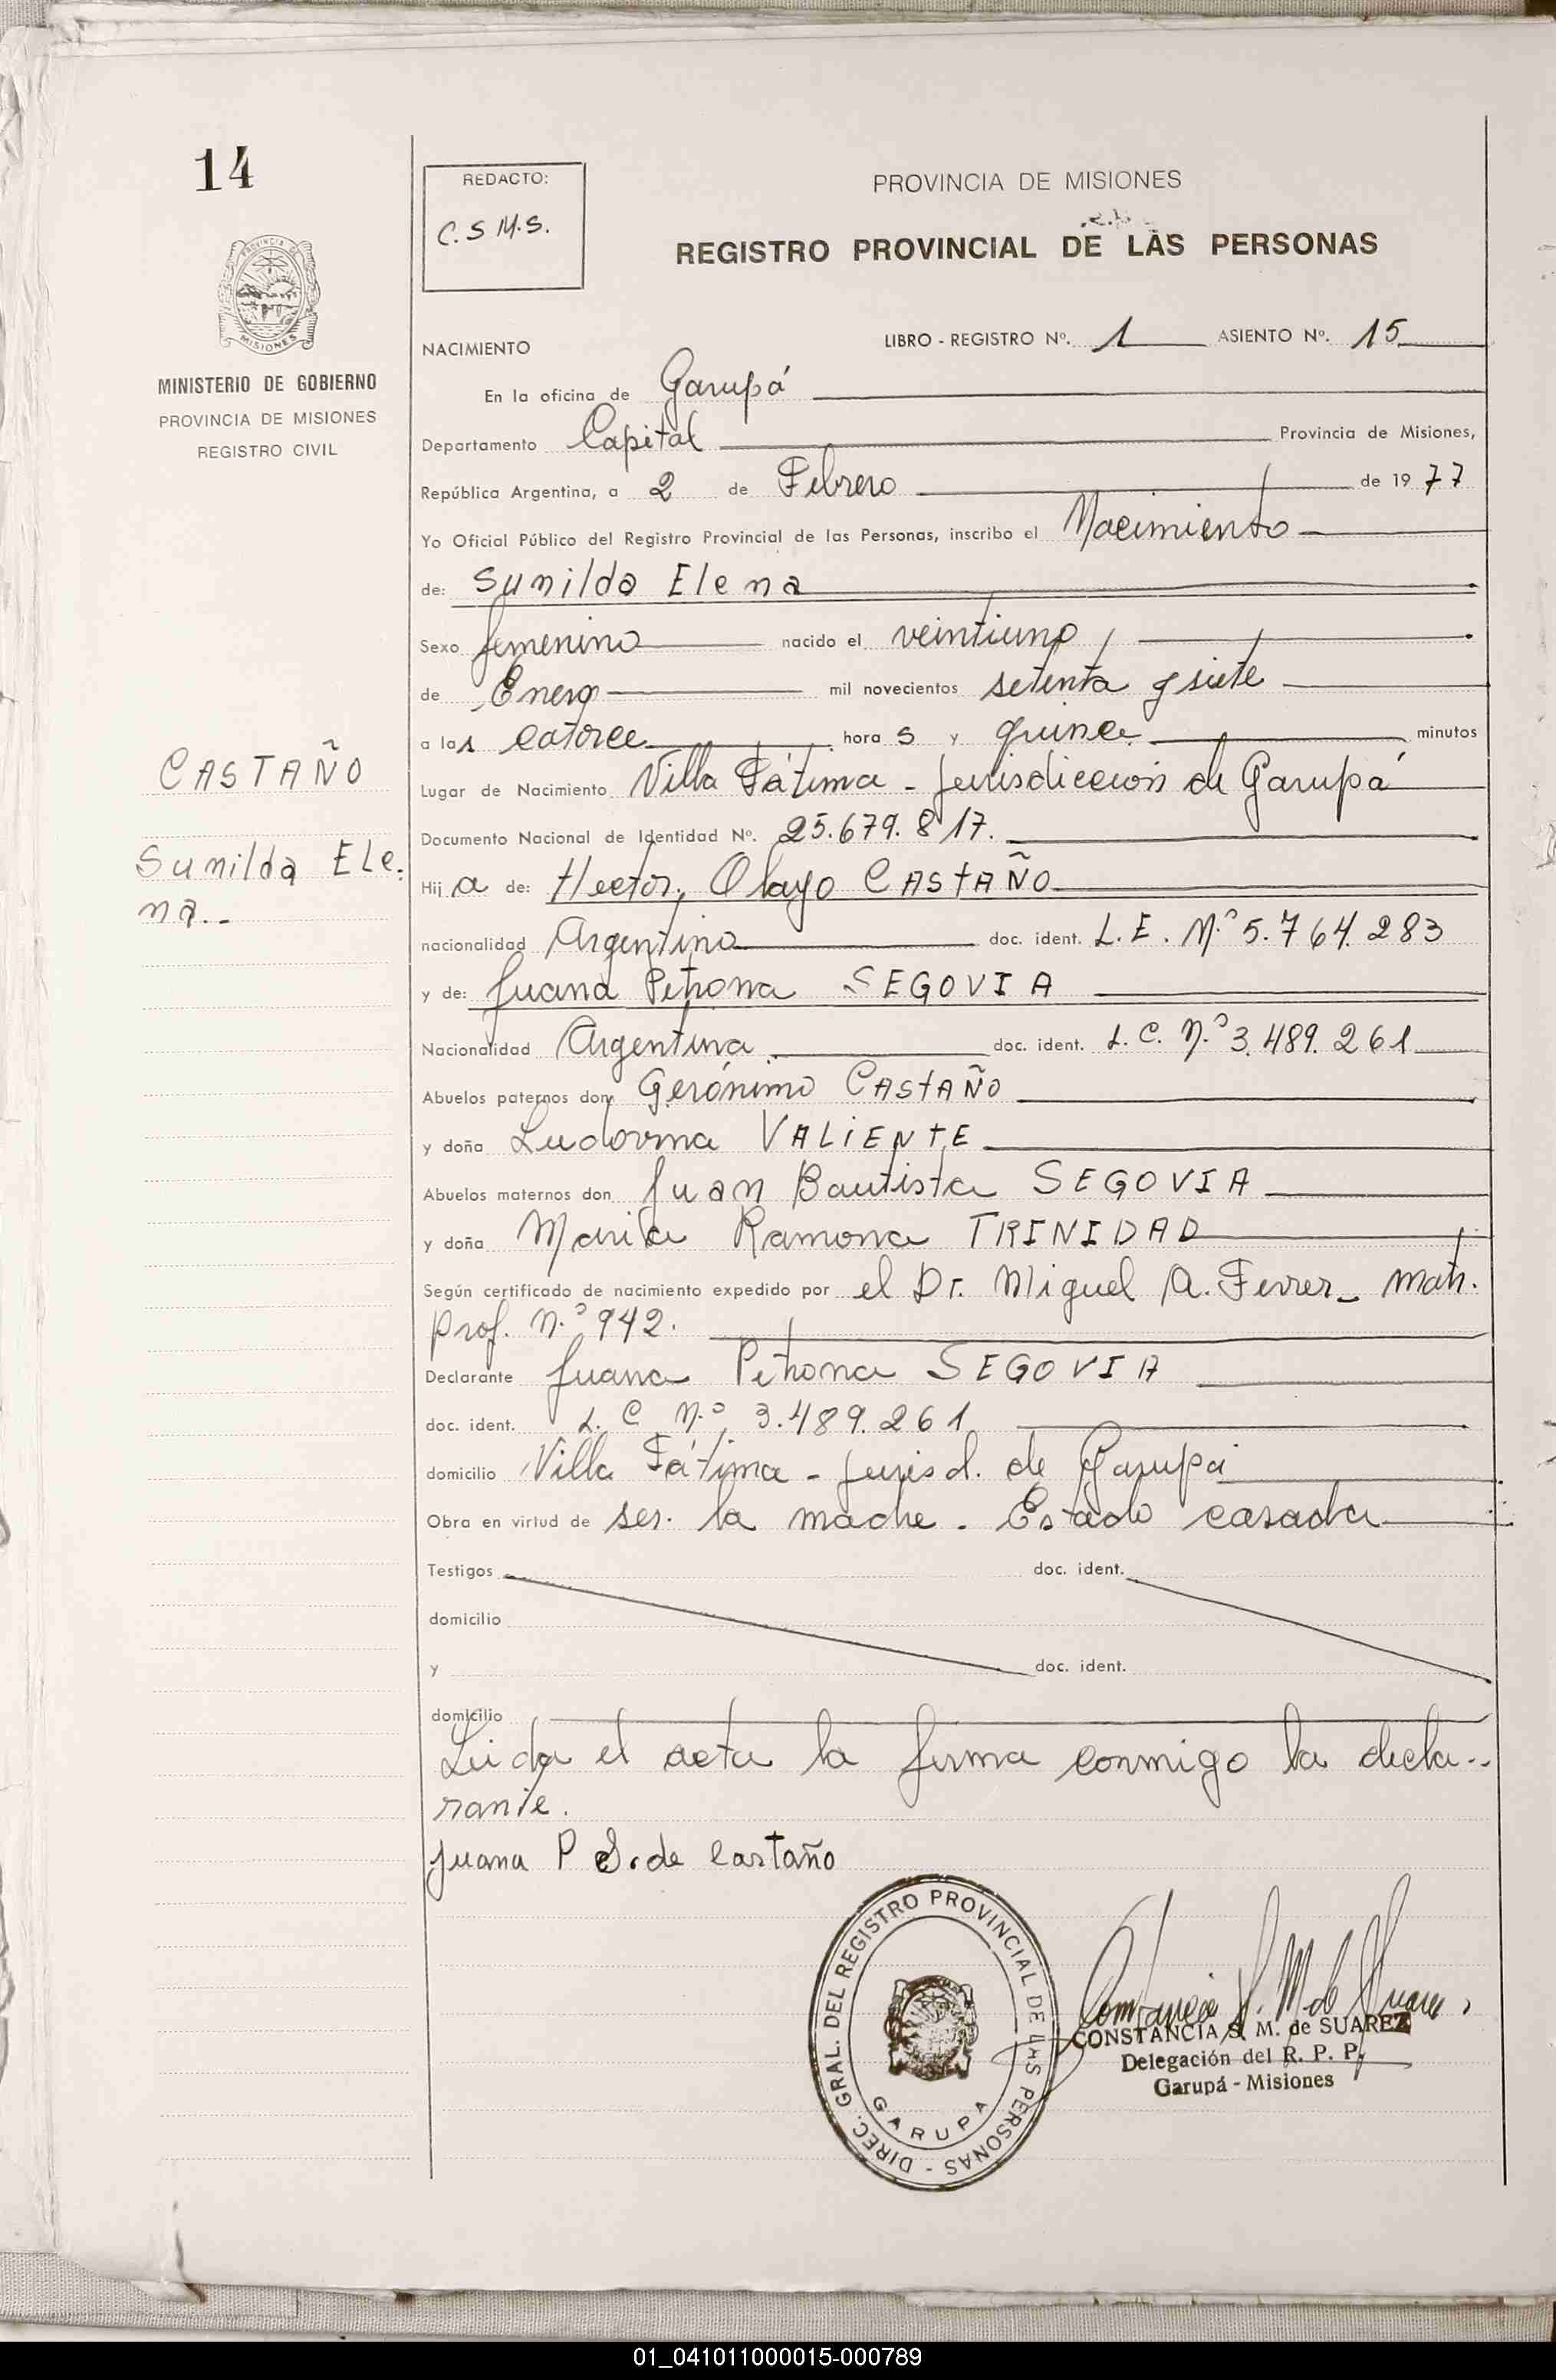 14
REDACTO:
C.S M.S.
PROVINCIA DE MISIONES
REGISTRO PROVINCIAL DE LAS PERSONAS
PROVINCIA DE
MISIONES
MINISTERIO DE GOBIERNO
PROVINCIA DE MISIONES
REGISTRO CIVIL
NACIMIENTO LIBRO - REGISTRO Nº. 1 ASIENTO Nº. 15
En la oficina de Garupá
Departamento Capital Provincia de Misiones,
República Argentina, a 2 de Febrero de 1977
Yo Oficial Público del Registro Provincial de las Personas, inscribo el Nacimiento
de: Sunilda Elena
Sexo femenino nacido el veintiuno
de Enero mil novecientos setenta y siete
a las catorce horas y quince minutos
CASTAÑO
Sunilda Ele.
na.-
Lugar de Nacimiento Villa Fátima - Jurisdicción de Garupá
Documento Nacional de Identidad Nº. 25.679.817.
Hija de: Hector, Olayo CASTAÑO
nacionalidad Argentino doc. ident. L.E. Nº 5.764.283
y de: Juana Petrona SEGOVIA
Nacionalidad Argentina doc. ident. L.C. Nº 3.489.261
Abuelos paternos don Gerónimo CASTAÑO
y doña VALIENTE
Abuelos maternos don Juan Bautista SEGOVIA
y doña María Ramona TRINIDAD
Según certificado de nacimiento expedido por el Dr. Miguel A. Ferrer - Mat.
Prof. Nº 942.
Declarante Juana Petrona SEGOVIA
doc. ident. L.C. Nº 3.489.261
domicilio Villa Fátima - Jurisd. de Garupá
Obra en virtud de ser. la madre. Estado casada
Testigos doc. ident.
domicilio
y doc. ident.
domicilio
Leida el acta la firma conmigo la decla..
rante.
Juana P S. de Castaño
DIREC. GRAL. DEL REGISTRO PROVINCIAL DE LAS PERSONAS -
GARUPA
Constancia S. M. de Suarez
CONSTANCIA S. M. de SUAREZ
Delegación del R. P. P.
Garupá - Misiones
01_041011000015-000789